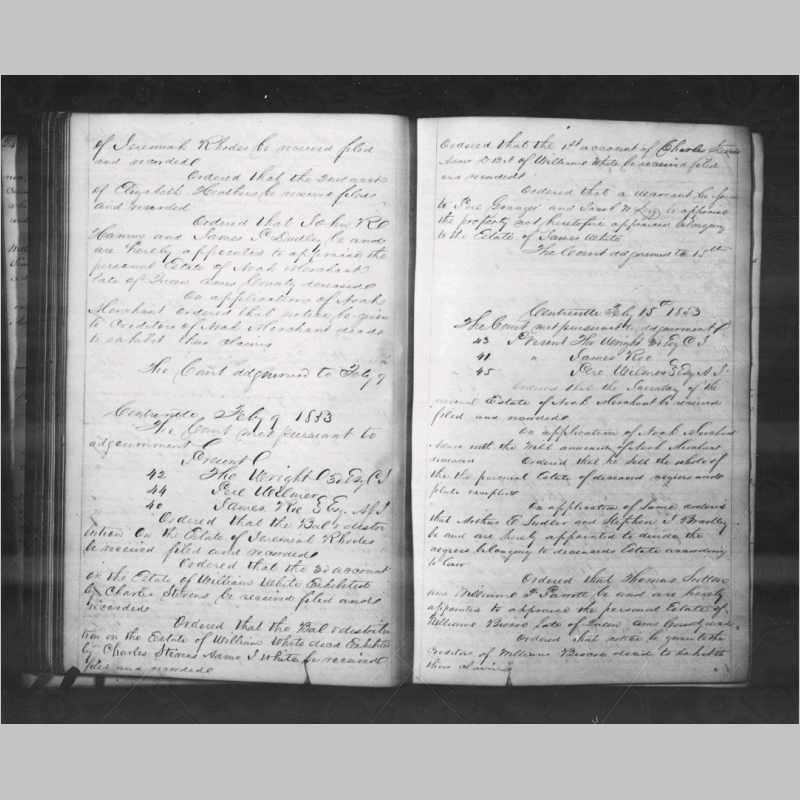 of Jeremiah Rhodes be received filed
and recorded
Ordered that the 2nd acct
of Elizabeth Heathers be received filed
and recorded
Ordered that John
and James P. Dudley be and
are hereby appointed to appraise the
personal Estate of Noah Merchant
late of Queen Anns County deceased
On application of Noah
Merchant ordered that notice be given
to Creditors of Noah Merchant decd
to exhibit their claims
The Court adjourned to Feby 9
Centreville Feby 9 1853
The Court met pursuant to
adjournment
Present
42 Tho Wright 3d Esq C J
44 Pere Wilmer
40 James Roe Esq A J
Ordered that the Bal & distri
bution on the Estate of Jeremiah Rhodes
be received filed and recorded
Ordered that the 3d account
on the Estate of William White Exhibited
by Charles Stevens be received filed and
recorded
Ordered that the Bal & distribu
tion on the Estate of William White decd Exhibited
by Charles Stevens Admr J White be received
filed and recorded
Ordered that the 1st account of Charles Stevens
Admr of William White be received filed
and recorded
Ordered that a warrant be
to Pere Granger and Jacob to appraise
the property not heretofore appraised belonging
to the Estate of James White
The Court adjourned to 15th
Centreville Feby 15th 1853
The Court met pursuant to adjournment
43 Present Tho Wright 3d Esq C J
41 " James Roe
45 Pere Wilmer Esq A J
Ordered that the of the
Estate of Noah Merchant be received
filed and recorded
On application of Noah Merchant
Admr with the Will annexed of Noah Merchant
deceased Ordered that he sell the whole of
the personal Estate of deceased negroes and
plate excepted
On application of Same ordered
that Arthur E. Sudler and Stephen J Bradley
be and are hereby appointed to divide the
negroes belonging to deceaseds Estate according
to law
Ordered that Thomas Sutton
and William F Parrott be and are hereby
appointed to appraise the personal Estate of
William late of Queen Anns County decd
Ordered that notice be given to the
Creditors of William decd to exhibit
their claims